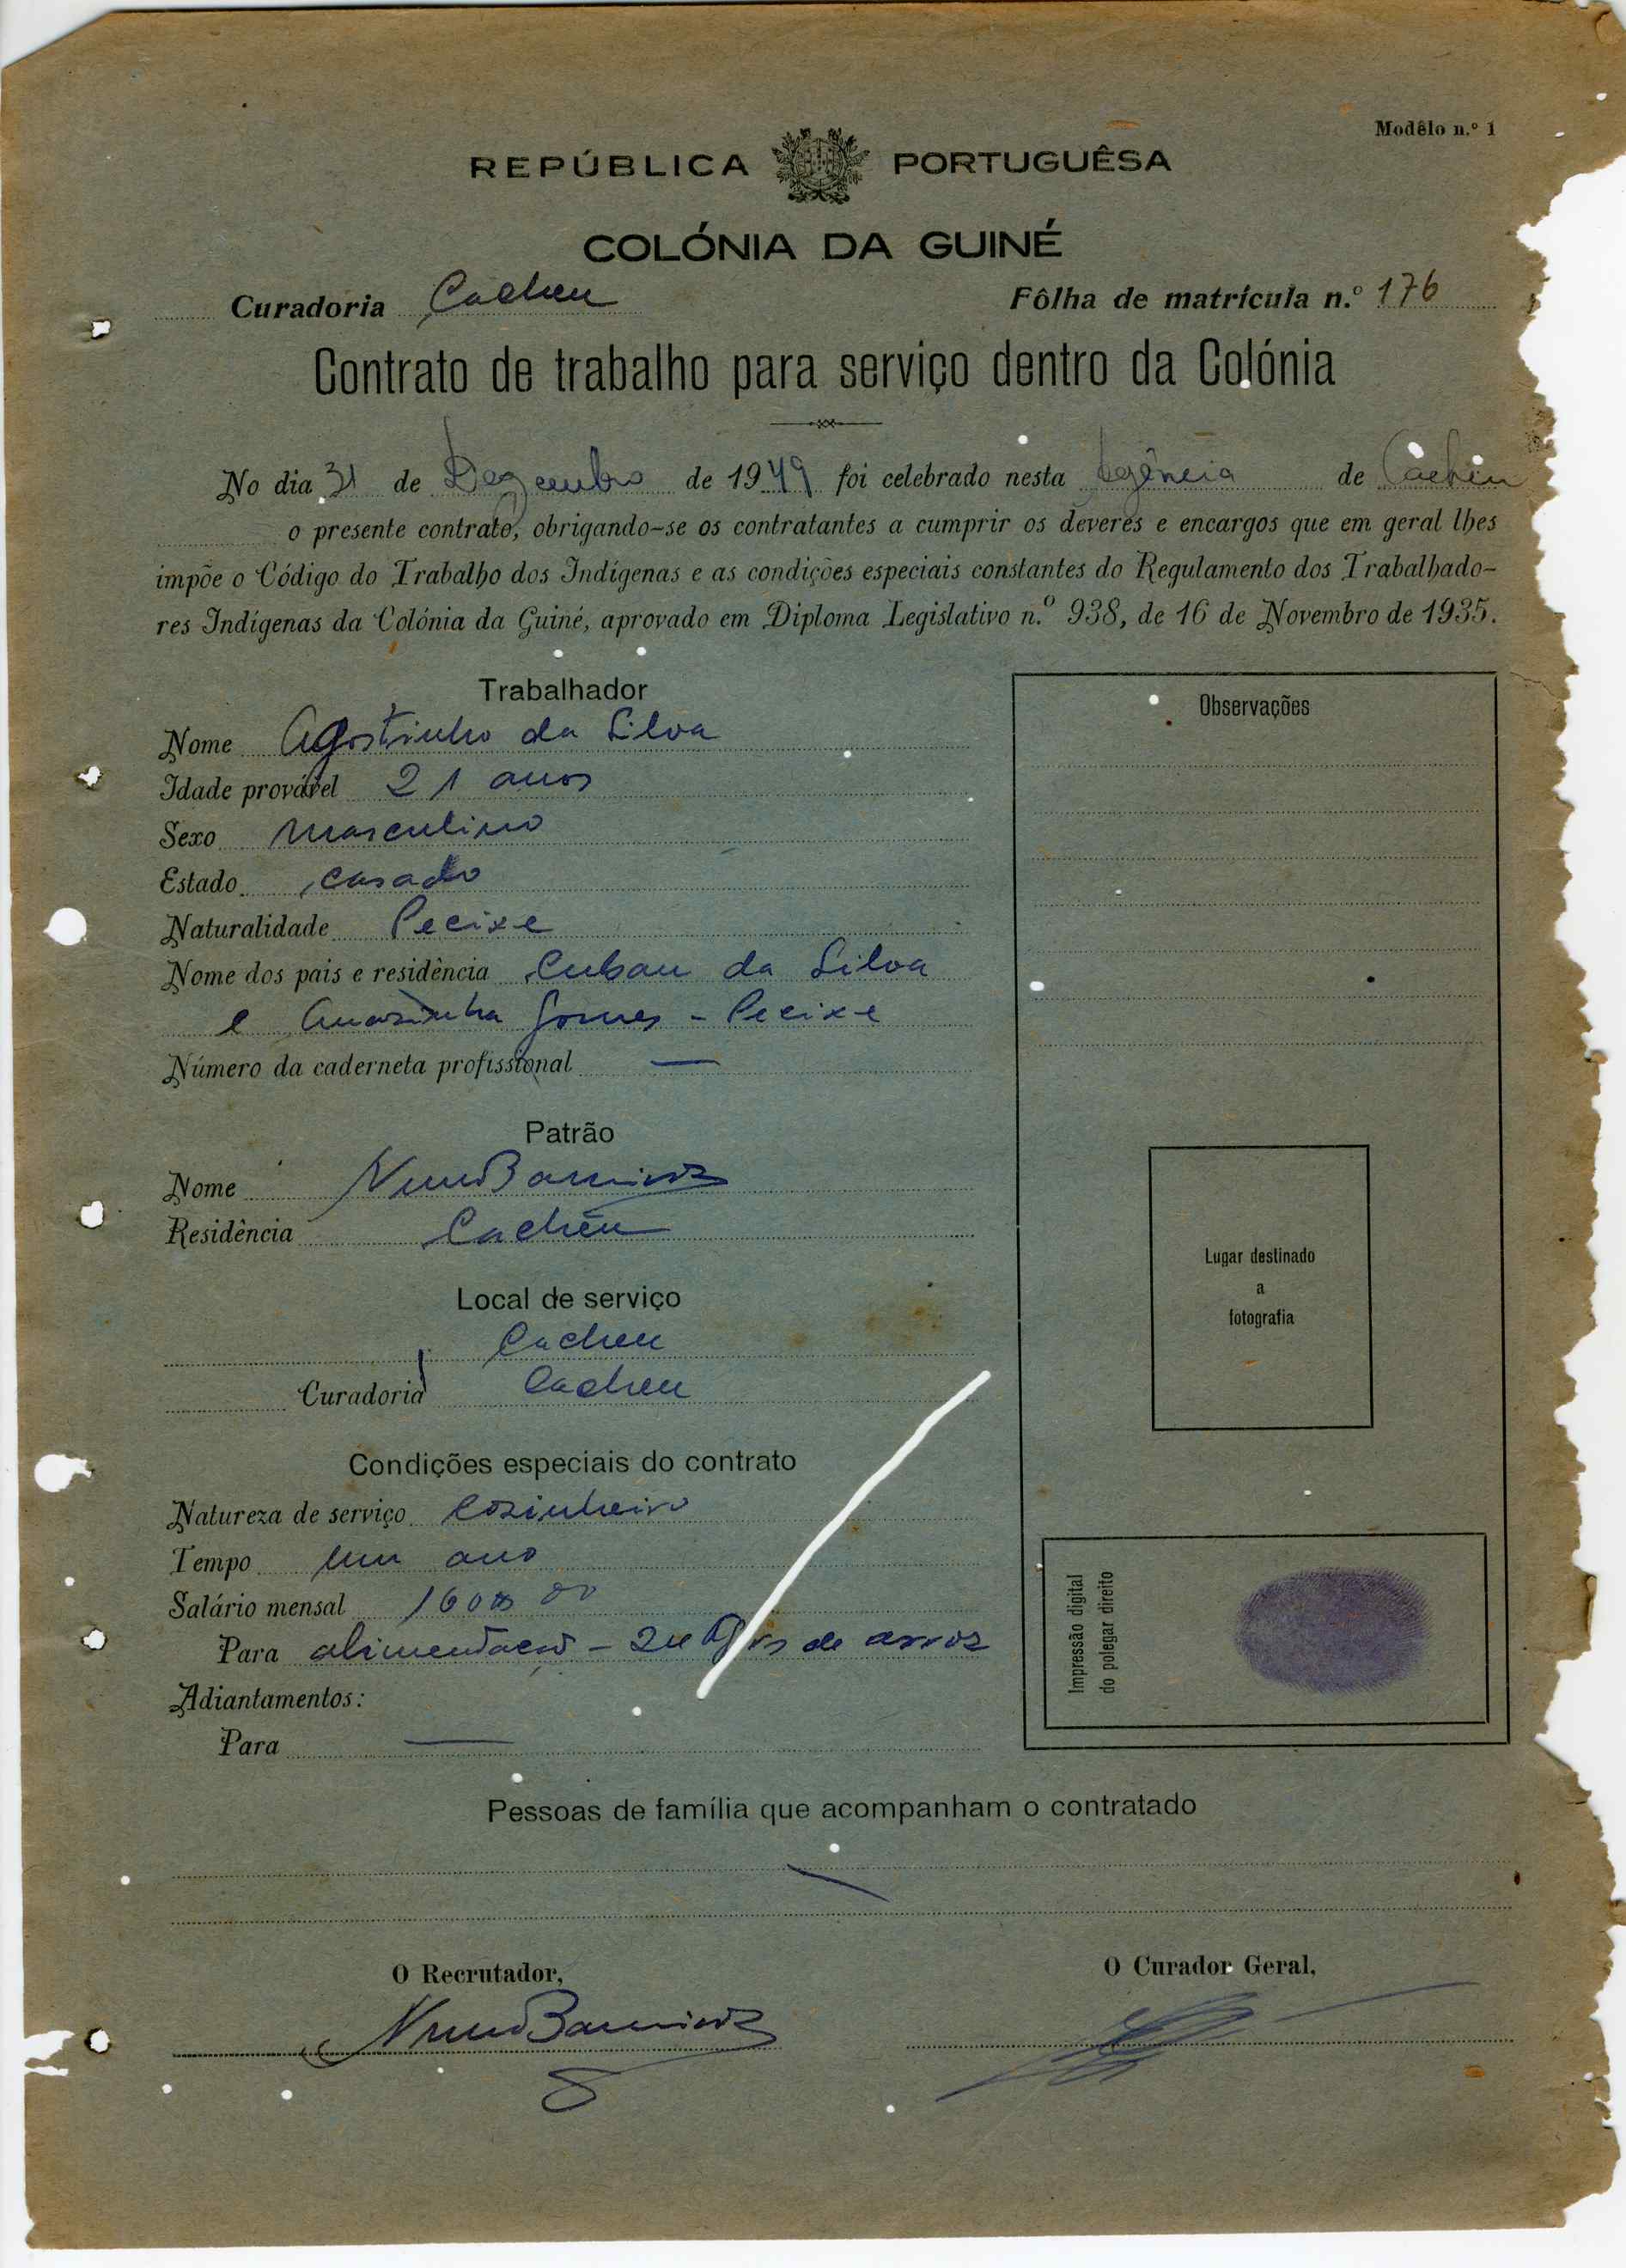 Modêlo n.º 1
REPÚBLICA PORTUGUÊSA
COLÓNIA DA GUINÉ
Curadoria Cacheu Fôlha de matrícula n.º 176
Contrato de trabalho para serviço dentro da Colónia
No dia 31 de Dezembro de 1949 foi celebrado nesta Agência de Cacheu
o presente contrato, obrigando-se os contratantes a cumprir os deveres e encargos que em geral lhes
impõe o Código do Trabalho dos Indígenas e as condições especiais constantes do Regulamento dos Trabalhado-
res Indígenas da Colónia da Guiné, aprovado em Diploma Legislativo n.º 938, de 16 de Novembro de 1935.
Trabalhador
Nome Agostinho da Silva
Idade provável 21 anos
Sexo Masculino
Estado casado
Naturalidade Pecixe
Nome dos pais e residência Cuban da Silva
e Gomes - Pecixe
Número da caderneta profissional —
Patrão
Nome Nuno
Residência Cachéu
Local de serviço
Cacheu
Curadoria Cacheu
Condições especiais do contrato
Natureza de serviço Cozinheiro
Tempo um ano
Salário mensal 160$00
Para alimentação - de arroz
Adiantamentos:
Para —
Observações
Lugar destinado
a
fotografia
Impressão digital
do polegar direito
Pessoas de família que acompanham o contratado
O Recrutador,
Nuno
O Curador Geral,